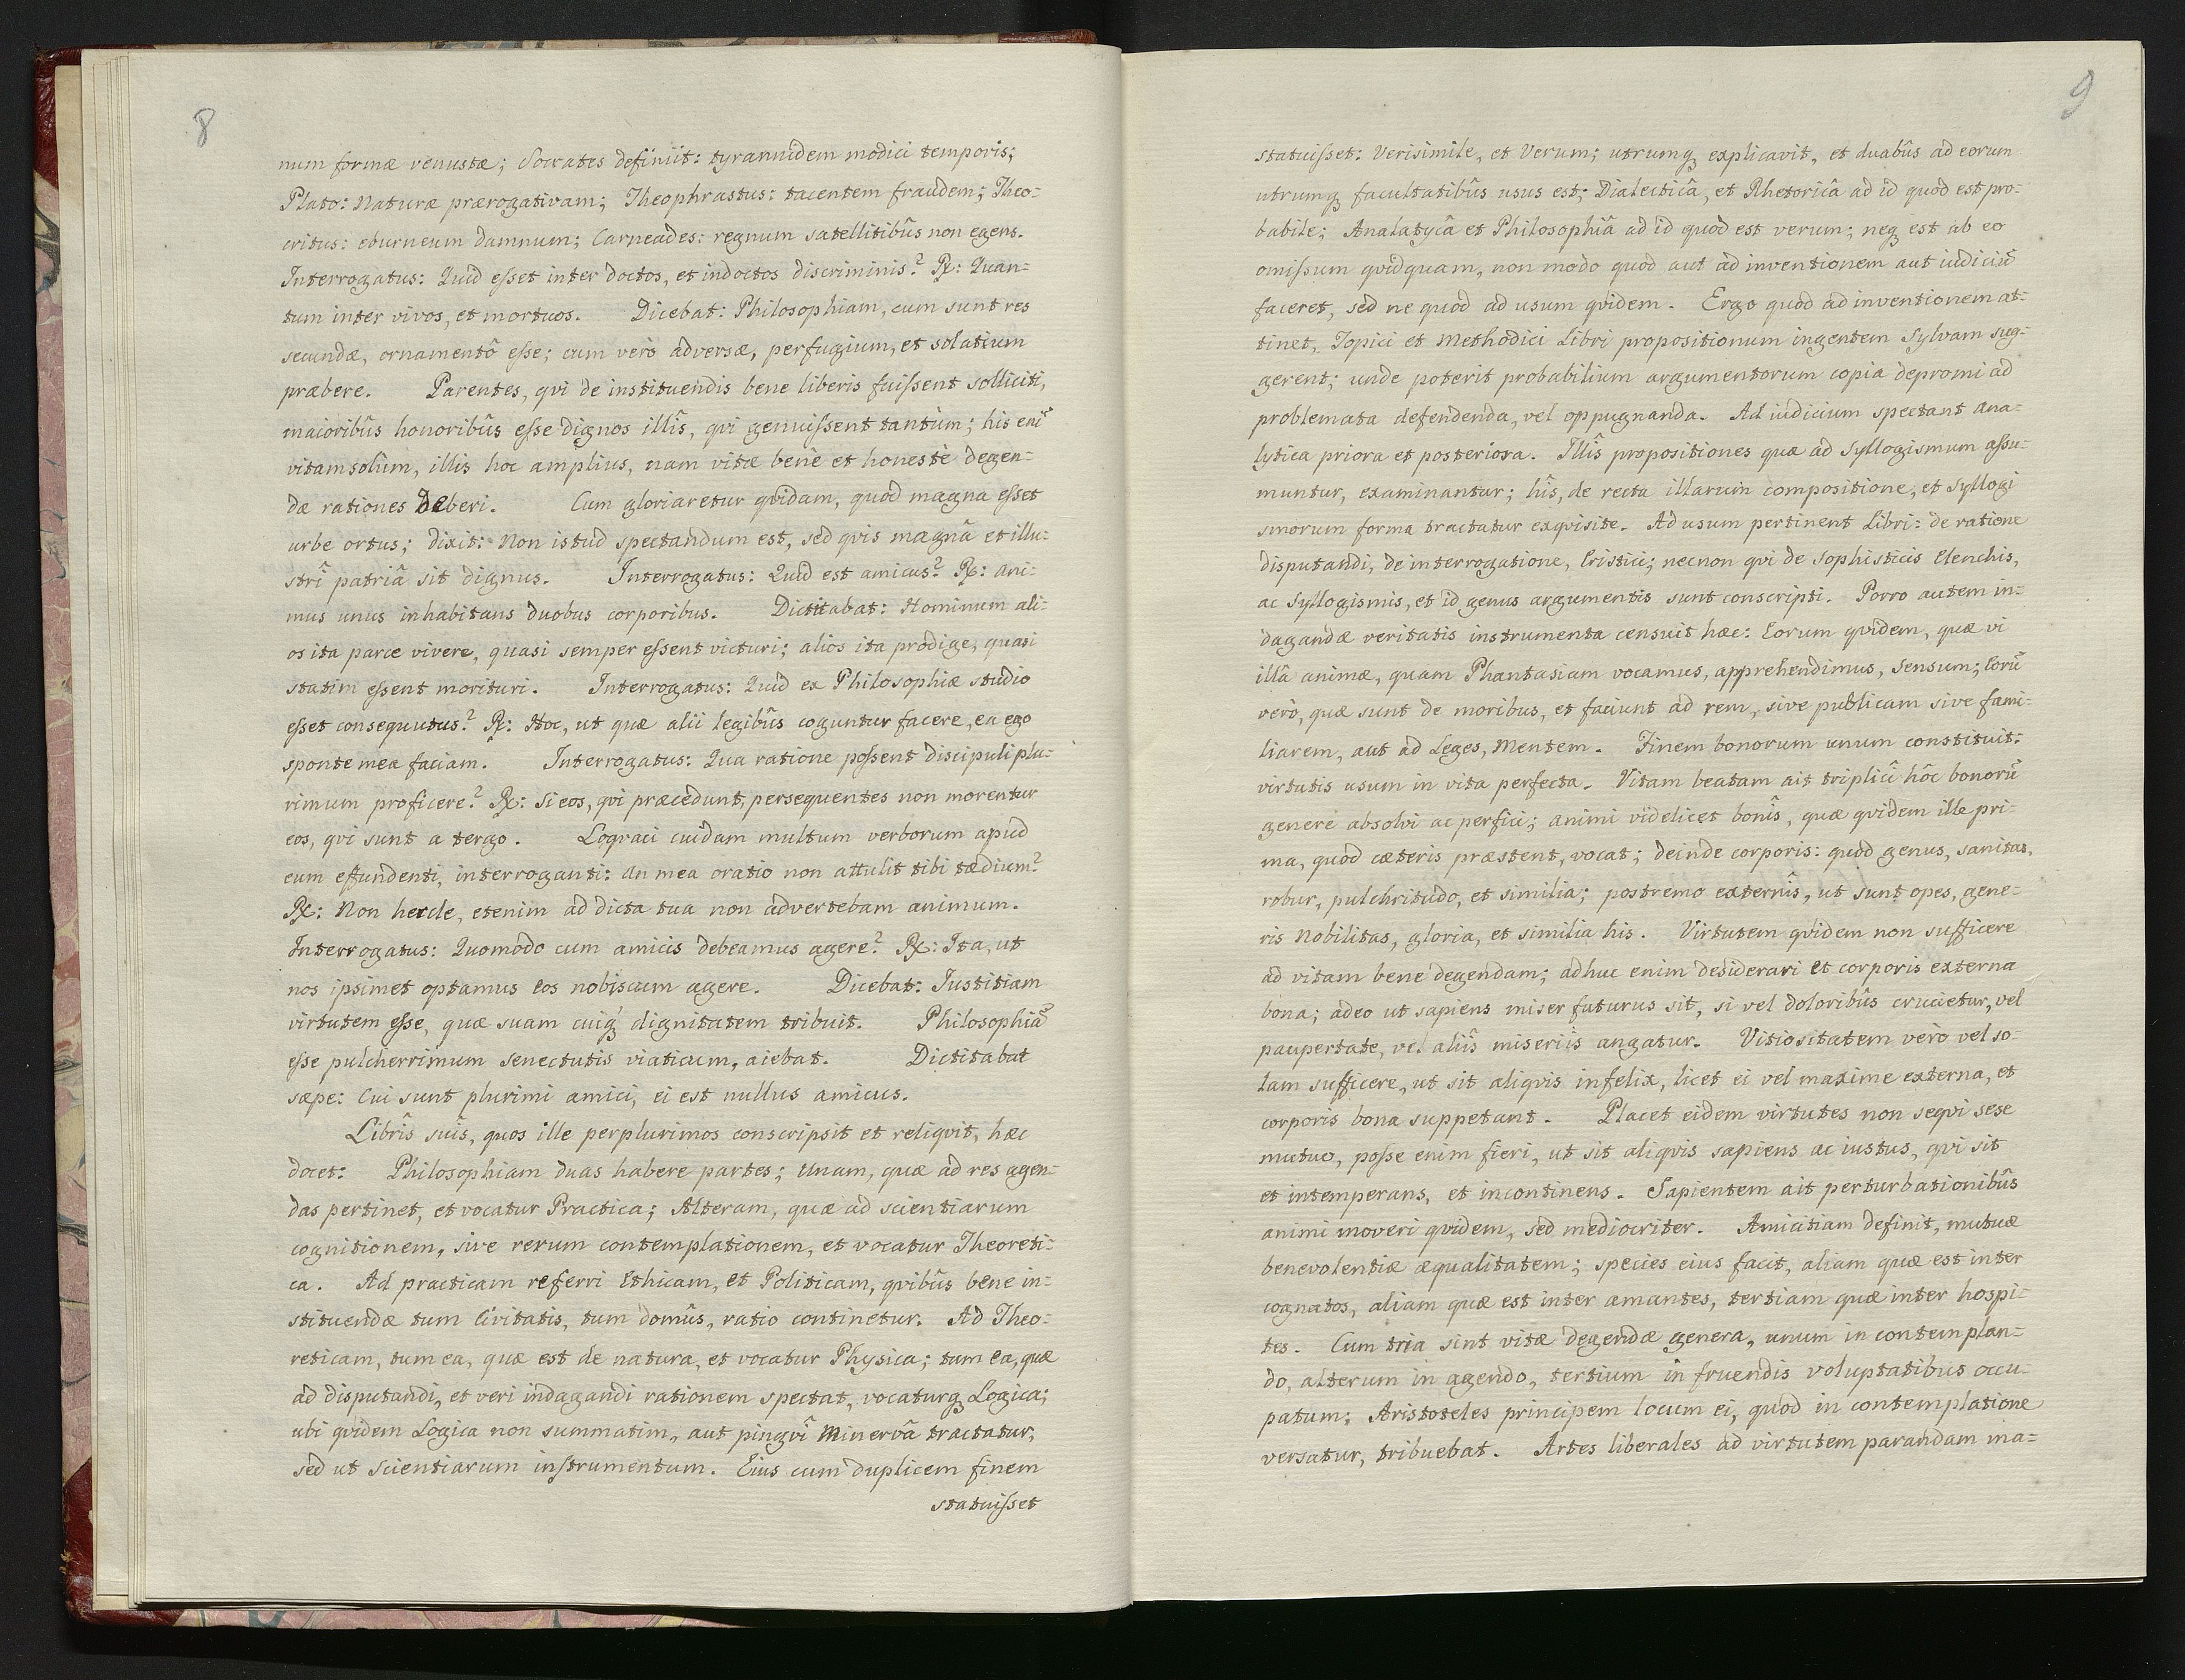 8
num formæ venustæ; Socrates definiit: tyrannidem modici temporis;
Plato: Naturæ prærogativam; Theophrastus: tacentem fraudem; Theo-
critus: eburneum damnum; Carneades: regnum satellitibûs non egens.
Interrogatus: Quid eſset inter doctos, et indoctos discriminis? ℞: Quan-
tum inter vivos, et mortuos. Dicebat: Philosophiam, cum sunt res
secundæ, ornamentô eſse; cum verò adversæ, perfugium, et solatium
præbere. Parentes, qvi de instituendis bene liberis fuiſsent solliciti,
maioribûs honoribûs eſse dignos illîs, qvi genuiſsent tantùm; his enĩ
vitam solùm, illis hoc amplius, nam vitæ benè et honestè degen-
dæ rationes deberi. Cum gloriaretur qvidam, quòd magna eſset
urbe ortus; dixit: Non istud spectandum est, sed qvis magnâ et illu-
strî patriâ sit dignus. Interrogatus: Quid est amicus? ℞: Ani-
mus unus inhabitans duobus corporibus. Dictitabat: Hominum ali-
os ita parce vivere, quasi semper eſsent victuri; alios ita prodige, quasi
statim eſsent morituri. Interrogatus: Quid ex Philosophiæ studio
eſset consequutus? ℞: Hoc, ut quæ alii legibûs coguntur facere, ea ego
sponte mea faciam. Interrogatus: Qua ratione poſsent discipuli plu-
rimum proficere? ℞: Si eos, qvi præcedunt, persequentes non morentur
eos, qvi sunt a tergo. Loqvaci cuidam multum verborum apud
eum effundenti, interroganti: An mea oratio non attulit tibi tædium?
℞: Non hercle, etenim ad dicta tua non advertebam animum.
Interrogatus: Quomodo cum amicis debeamus agere? ℞: Ita, ut
nos ipsimet optamus eos nobiscum agere. Dicebat: Iustitiam
virtutem eſse, quæ suam cuiqꝫ dignitatem tribuit. Philosophiã
eſse pulcherrimum senectutis viaticum, aiebat. Dictitabat
sæpe: Cui sunt plurimi amici, ei est nullus amicus.
Librîs suîs, quos ille perplurimos conscripsit et reliqvit, hæc
docet: Philosophiam duas habere partes; Unam, quæ ad res agen-
das pertinet, et vocatur Practica; Alteram, quæ ad scientiarum
cognitionem, sive rerum contemplationem, et vocatur Theoreti-
ca. Ad practicam referri Ethicam, et Politicam, qvibûs bene in-
stituendæ tum Civitatis, tum domûs, ratio continetur. Ad Theo-
reticam, tum ea, quæ est de natura, et vocatur Physica; tum ea, quæ
ad disputandi, et veri indagandi rationem spectat, vocaturqꝫ Logica;
ubi qvidem Logica non summatim, aut pingvî Minervâ tractatur,
sed ut scientiarum instrumentum. Eius cum duplicem finem
statuiſset
9
statuiſset: Verisimile, et Verum; utrumqꝫ explicavit, et duabûs ad eorum
utrumqꝫ facultatibûs usus est; Dialecticâ, et Rhetoricâ ad id quod est pro-
babile; Analatycâ et Philosophiâ ad id quod est verum; neqꝫ est ab eo
omiſsum qvidquam, non modo quod aut ad inventionem aut iudiciũ
faceret, sed ne quod ad usum qvidem. Ergo quod ad inventionem at-
tinet, Topici et Methodici Libri propositionum ingentem sylvam sug-
gerent; unde poterit probabilium argumentorum copia depromi ad
problemata defendenda, vel oppugnanda. Ad iudicium spectant Ana-
lytica priora et posteriora. Illîs propositiones quæ ad Syllogismum aſsu-
muntur, examinantur; hîs, de recta illarum compositione, et syllogi
smorum forma tractatur exqvisite. Ad usum pertinent Libri: de ratione
disputandi, de interrogatione, Eristici; necnon qvi de Sophisticis Elenchis,
ac Syllogismis, et id genus argumentis sunt conscripti. Porro autem in-
dagandæ veritatis instrumenta censuit hæc: Eorum qvidem, quæ vi
illâ animæ, quam Phantasiam vocamus, apprehendimus, Sensum; Eorũ
verò, quæ sunt de moribus, et faciunt ad rem, sive publicam sive fami-
liarem, aut ad Leges, Mentem. Finem bonorum unum constituit:
virtutis usum in vita perfecta. Vitam beatam ait triplici hôc bonorũ
genere absolvi ac perfici; animi videlicet bonîs, quæ qvidem ille pri-
ma, quòd cæteris præstent, vocat; deinde corporis: quod genus, sanitas,
robur, pulchritudo, et similia; postremo externîs, ut sunt opes, gene-
ris Nobilitas, gloria, et similia his. Virtutem qvidem non sufficere
ad vitam bene degendam; adhuc enim desiderari et corporis externa
bona; adeo ut sapiens miser futurus sit, si vel doloribûs crucietur, vel
paupertate, vel aliîs miseriis angatur. Vitiositatem verò vel so-
lam sufficere, ut sit aliqvis infelix, licet ei vel maxime externa, et
corporis bona suppetant. Placet eidem virtutes non seqvi sese
mutuo, poſse enim fieri, ut sit aliqvis sapiens ac iustus, qvi sit
et intemperans, et incontinens. Sapientem ait perturbationibûs
animi moveri qvidem, sed mediocriter. Amicitiam definit, mutuæ
benevolentiæ æqualitatem; species eius facit, aliam quæ est inter
cognatos, aliam quæ est inter amantes, tertiam quæ inter hospi-
tes. Cum tria sint vitæ degendæ genera, unum in contemplan-
do, alterum in agendo, tertium in fruendis voluptatibus occu-
patum; Aristoteles principem locum ei, quod in contemplatione
versatur, tribuebat. Artes liberales ad virtutem parandam ma-